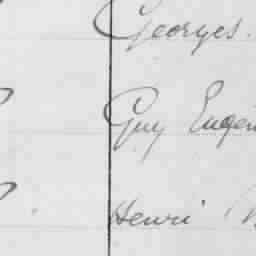 Georges.
Guy Eugen
Henri